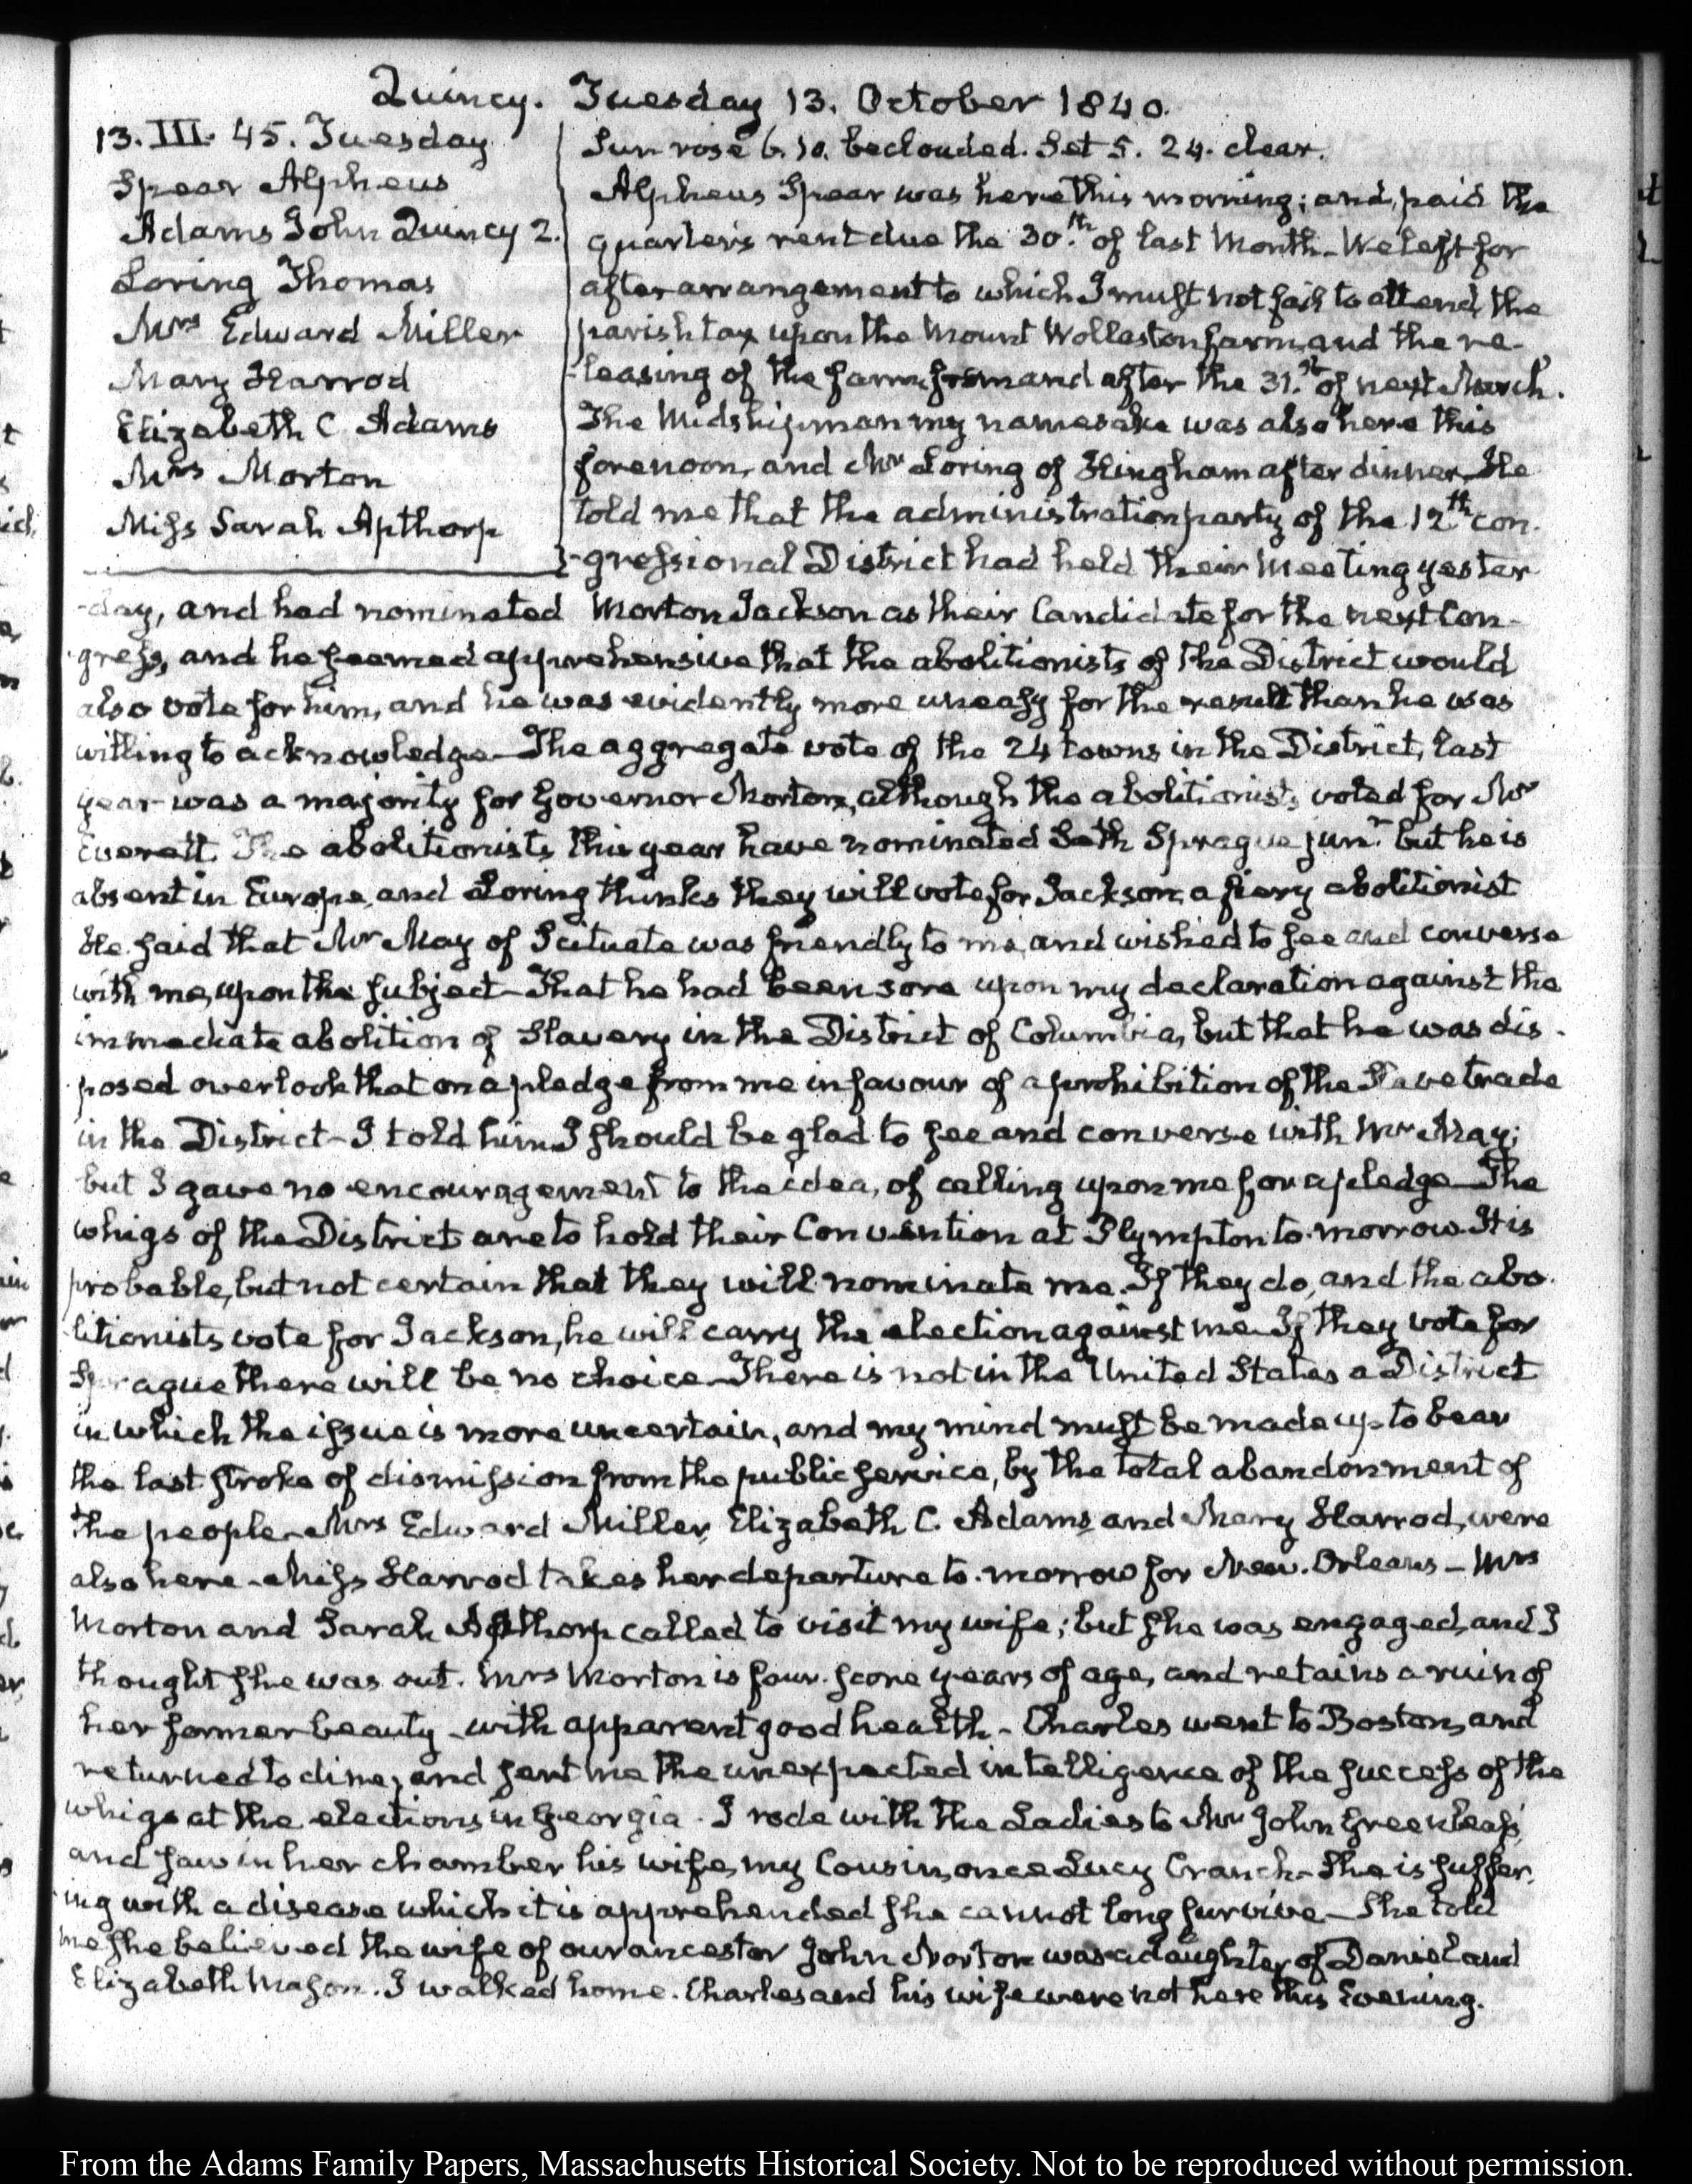 Quincy. Tuesday 13. October 1840.
13. III. 45. Tuesday
Spear Alpheus
Adams John Quincy 2.
Loring Thomas
Mrs Edward Miller
Mary Harrod
Elizabeth C Adams
Mrs Morton
Miss Sarah Apthorp
Sun rose 6. 10. beclouded. Set 5. 24. clear.
Alpheus Spear was here this morning; and, paid the
quarter's rent due the 30.th of last Month. We left for
after arrangement to which I must not fail to attend, the
parish tax upon the Mount Wollaston farm, and the re-
-leasing of the farm from and after the 31.st of next March.
The Midshipman my namesake was also here this
forenoon, and Mr Loring of Hingham after dinner. He
told me that the administration party of the 12th con-
-gressional District had held their Meeting yester
-day, and had nominated Morton Jackson as their Candidate for the next Con-
-gress, and he seemed apprehensive that the abolitionists of the District would
also vote for him, and he was evidently more uneasy for the result than he was
willing to acknowledge—The aggregate vote of the 24 towns in the District, last
year was a majority for Governor Morton, although the abolitionists voted for Mr
Everett. The abolitionists this year have nominated Seth Sprague junr. but he is
absent in Europe, and Loring thinks they will vote for Jackson, a fiery abolitionist
He said that Mr May of Scituate was friendly to me, and wished to see and converse
with me, upon the subject—That he had been sore upon my declaration against the
immediate abolition of Slavery in the District of Columbia, but that he was dis-
posed overlook that on a pledge from me in favour of a prohibition of the Slave trade
in the District—I told him I should be glad to see and converse with Mr May;
but I gave no encouragement to the idea, of calling upon me for a pledge—The
whigs of the District are to hold their Convention at Plympton to-morrow. It is
probable, but not certain that they will nominate me. If they do, and the abo-
-litionists vote for Jackson, he will carry the election against me. If they vote for
Sprague there will be no choice—There is not in the United States a District
in which the issue is more uncertain, and my mind must be made up to bear
the last stroke of dismission from the public service, by the total abandonment of
the people—Mrs Edward Miller, Elizabeth C. Adams and Mary Harrod, were
also here—Miss Harrod takes her departure to-morrow for New-Orleans—Mrs
Morton and Sarah Apthorp called to visit my wife; but she was engaged, and I
thought she was out. Mrs Morton is four-score years of age, and retains a ruin of
her former beauty—with apparent good health—Charles went to Boston, and
returned to dine, and sent me the unexpected intelligence of the success of the
whigs at the elections in Georgia—I rode with the Ladies to Mr John Greenleaf's
and saw in her chamber his wife, my Cousin, once Lucy Cranch. She is suffer-
-ing with a disease which it is apprehended she cannot long survive—She told
me she believed the wife of our ancestor John Norton was a daughter of Daniel and
Elizabeth Mason. I walked home. Charles and his wife were not here this Evening.
From the Adams Family Papers, Massachusetts Historical Society. Not to be reproduced without permission.